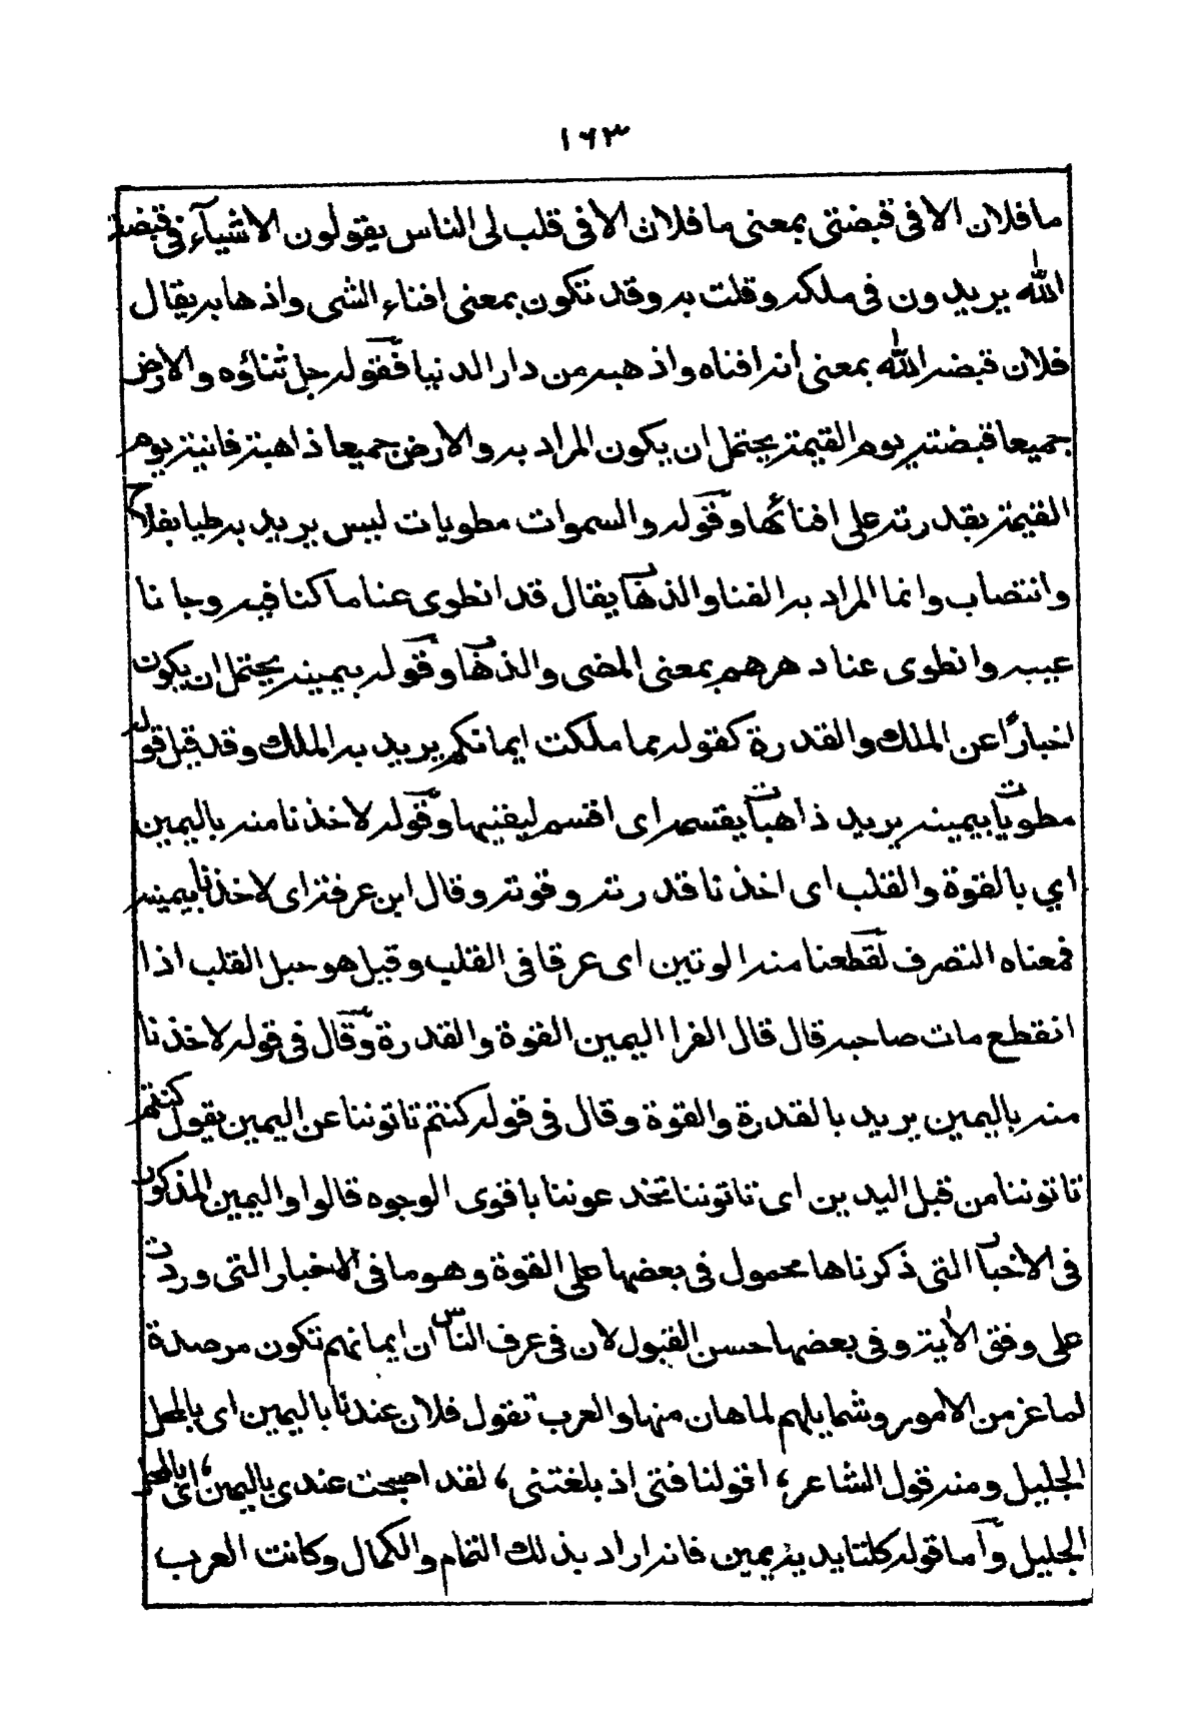 ١٦٣
ما فلان الا فى قبضتى بمعنى ما فلان الا فى قلب لى الناس يقولون الاشيآء فى قبضة
الله يريدون فى ملكه وقلت به وقد تكون بمعنى افناء الشى واذهابه يقال
فلان قبضه الله بمعنى انه افناه واذهبه من دار الدنيا فقوله جل ثناؤه والارض
جميعا قبضته يوم القيمة يحتمل ان يكون المراد به والارض جميعا ذاهبة فانية يوم
القيمة بقدرته على افنائها وقوله والسموات مطويات ليس يريد به طيا بفلاج
وانتصاب وانما المراد به الفنا والذهاب يقال قد انطوى عنا ما كنا فيه وجانا
عيبه وانطوى عنا دهرهم بمعنى المضى والذهاب وقوله بيمينه يحتمل ان يكون
اخبارًا عن الملك والقدرة كقوله مما ملكت ايمانكم يريد به الملك وقد قيل قوله
مطويات بيمينه يريد ذاهبات بقسمه اى اقسم ليفنيها وقوله لاخذنا منه باليمين
اي بالقوة والقلب اى اخذنا قدرته وقوته وقال ابن عرفة اى لاخذنا بيمينه
فمعناه التصرف لقطعنا منه الوتين اى عرقا فى القلب وقيل هو حبل القلب اذا
انقطع مات صاحبه قال قال الفرا اليمين القوة والقدرة وقال فى قوله لاخذنا
منه باليمين يريد بالقدرة والقوة وقال فى قوله كنتم تاتوننا عن اليمين يقول كنتم
تاتوننا من قبل اليدين اى تاتوننا تخدعوننا باقوى الوجوه قالوا واليمين المذكور
فى الاخبار التى ذكرناها محمول فى بعضها على القوة وهو ما فى الاخبار التى وردت
على وفق الاية وفى بعضها حسن القبول لان فى عرف الناس ان ايمانهم تكون مرصدة
لما عز من الامور وشمايلهم لما هان منها والعرب تقول فلان عندنا باليمين اى بالمحل
الجليل ومنه قول الشاعر؛ اقولنا فتى اذ بلغتنى، لقد اصبحت عندى باليمين، اى بالمحل
الجليل وآما قوله كلتا يديه يمين فانه اراد بذلك التمام والكمال وكانت العرب